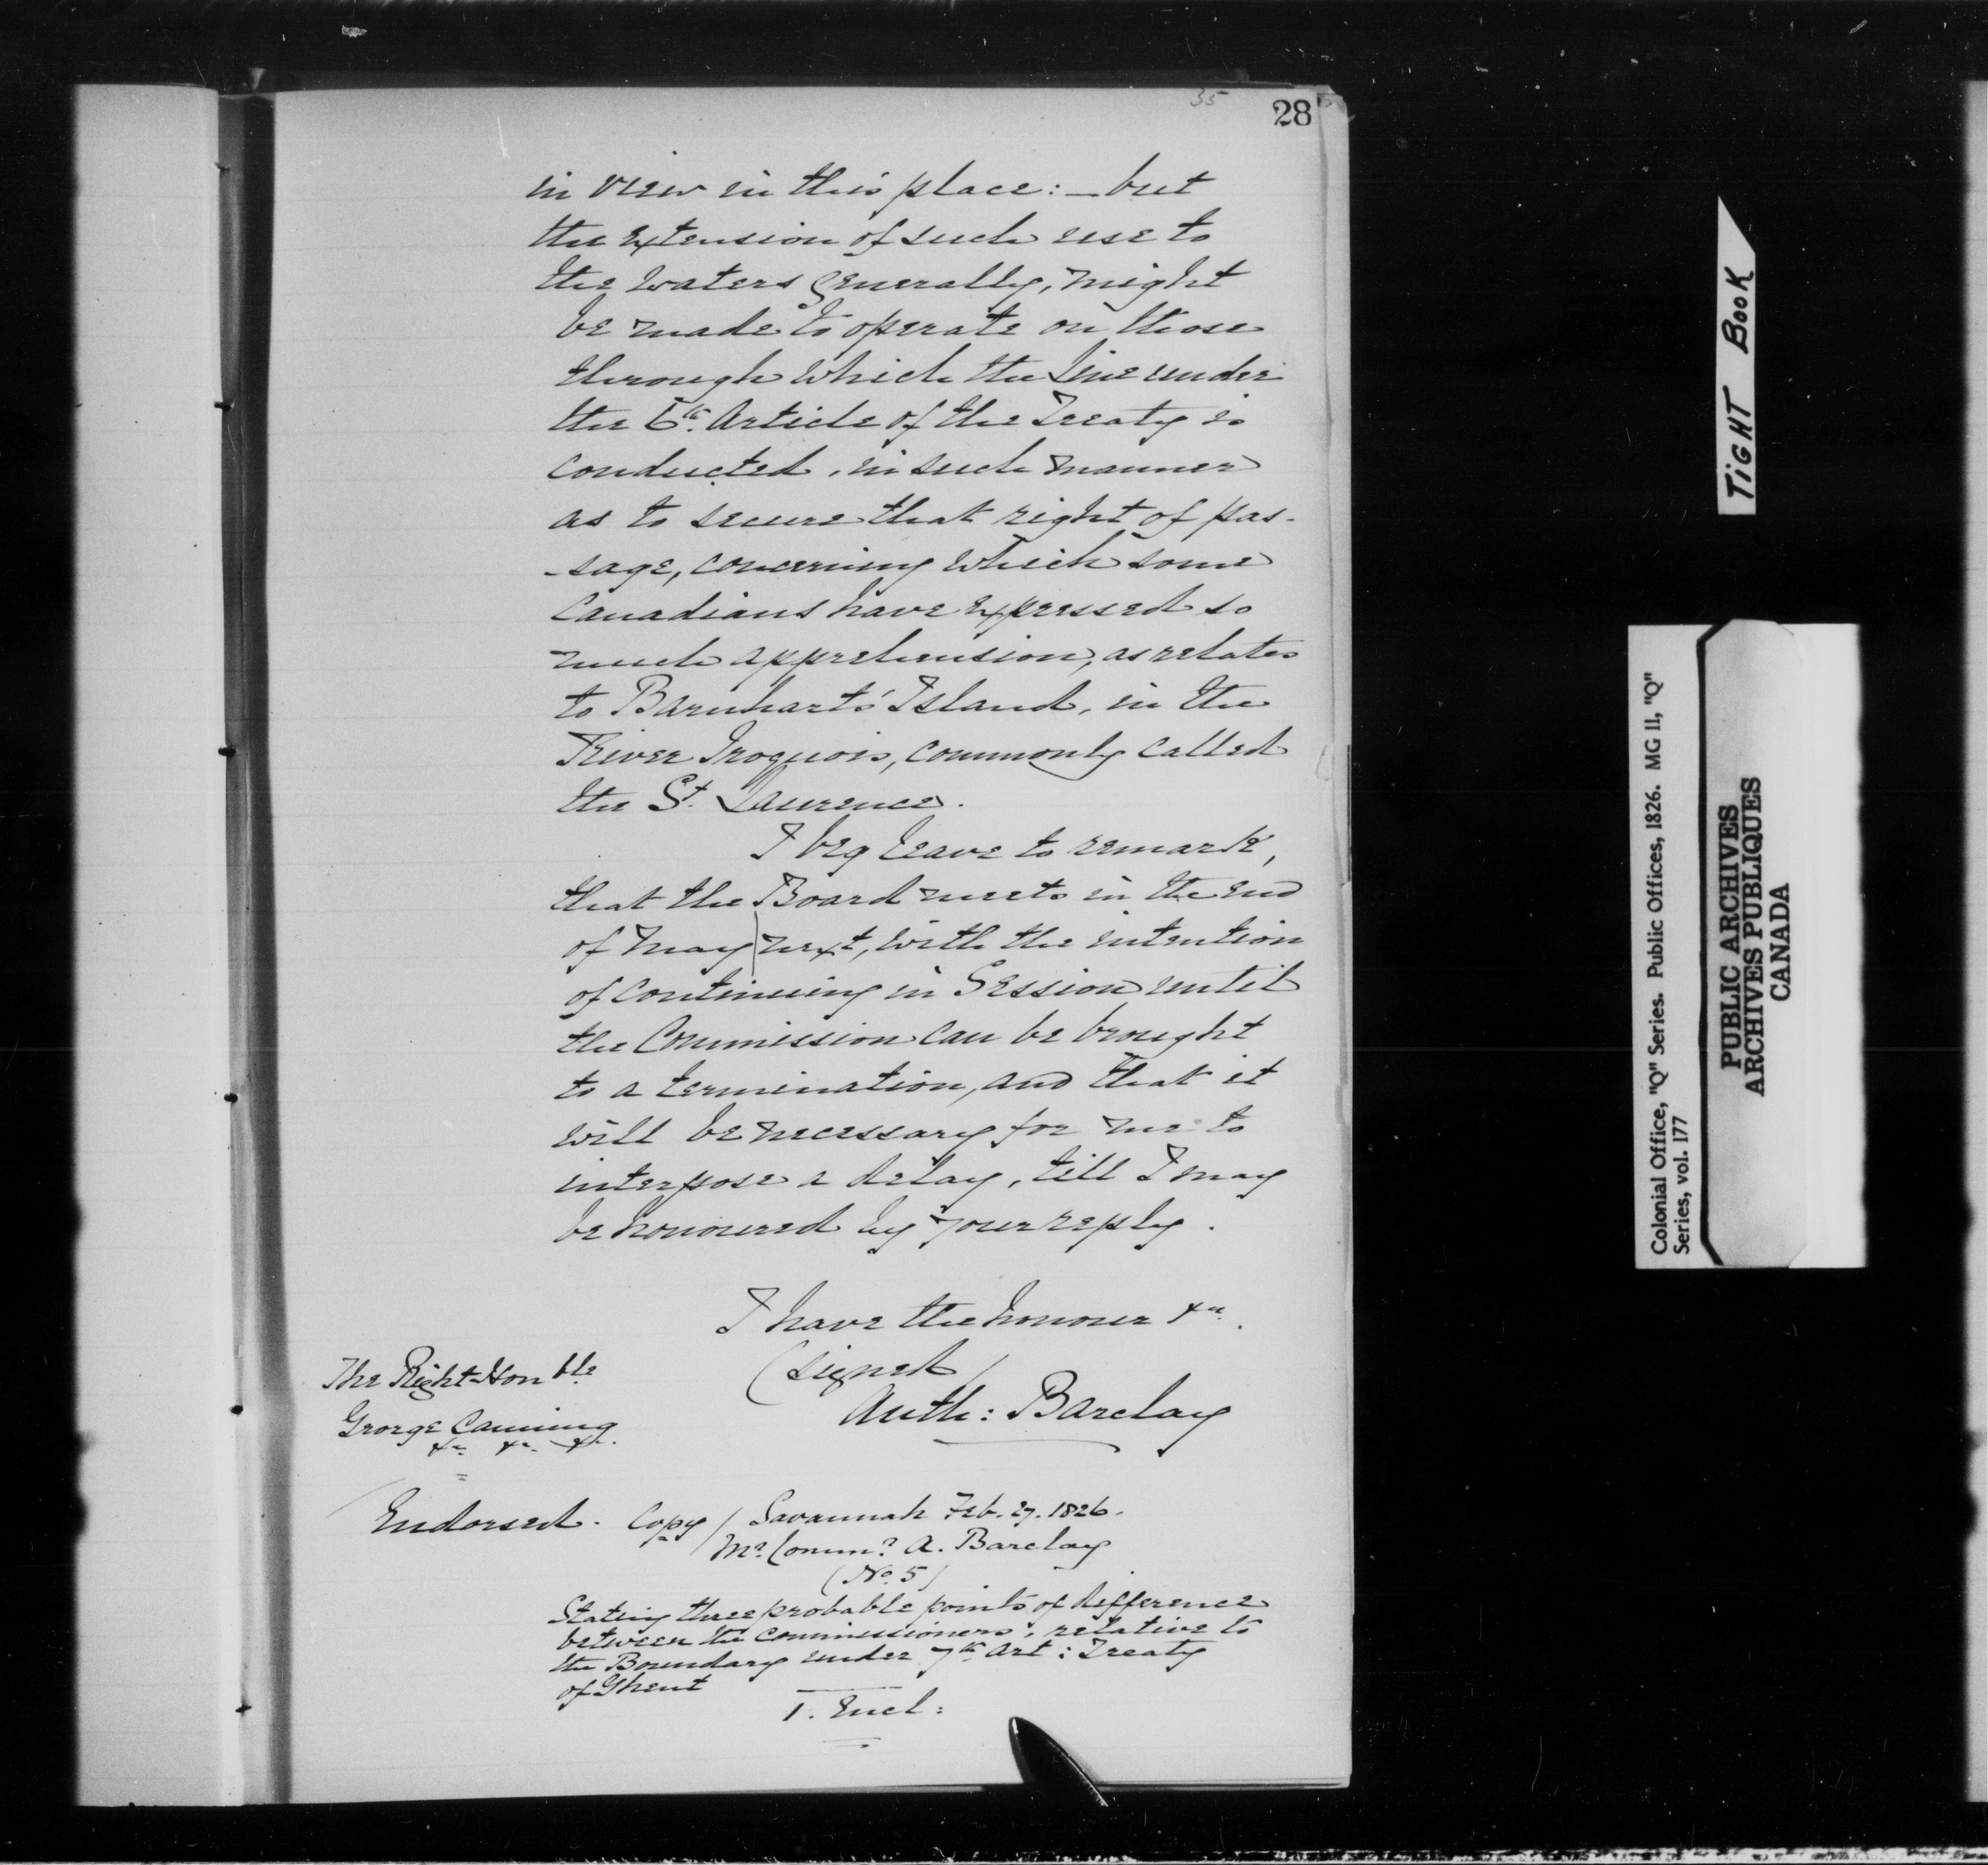 35
28
in view in this place: — but
the extension of such use to
the waters generally, might
be made to operate on those
through which the Line under
the 6th. Article of the Treaty is
conducted, in such manner
as to secure that right of pas-
-sage, concerning which some
Canadians have expressed so
much apprehension, as relates
to Barnhart's Island, in the
River Iroquois, commonly called
the St. Laurence.
I beg leave to remark,
that the Board meets in the end
of May next, with the intention
of continuing in Session until
the Commission can be brought
to a termination, and that it
will be necessary for me to
interpose a delay, till I may
be honoured by your reply.
I have the honour &a.
(signed)
Anth: Barclay
The Right Honble
George Canning
&a &a &a.
Endorsed. Copy / Savannah Feb. 27. 1826.
Mr. Commr. A. Barclay
(No. 5)
Stating three probable points of difference
between the Commissioners, relative to
the Boundary under 7th Art: Treaty
of Ghent
1. Encl:
TIGHT BOOK
Colonial Office, "Q" Series. Public Offices, 1826. MG 11, "Q"
Series, vol. 177
PUBLIC ARCHIVES
ARCHIVES PUBLIQUES
CANADA